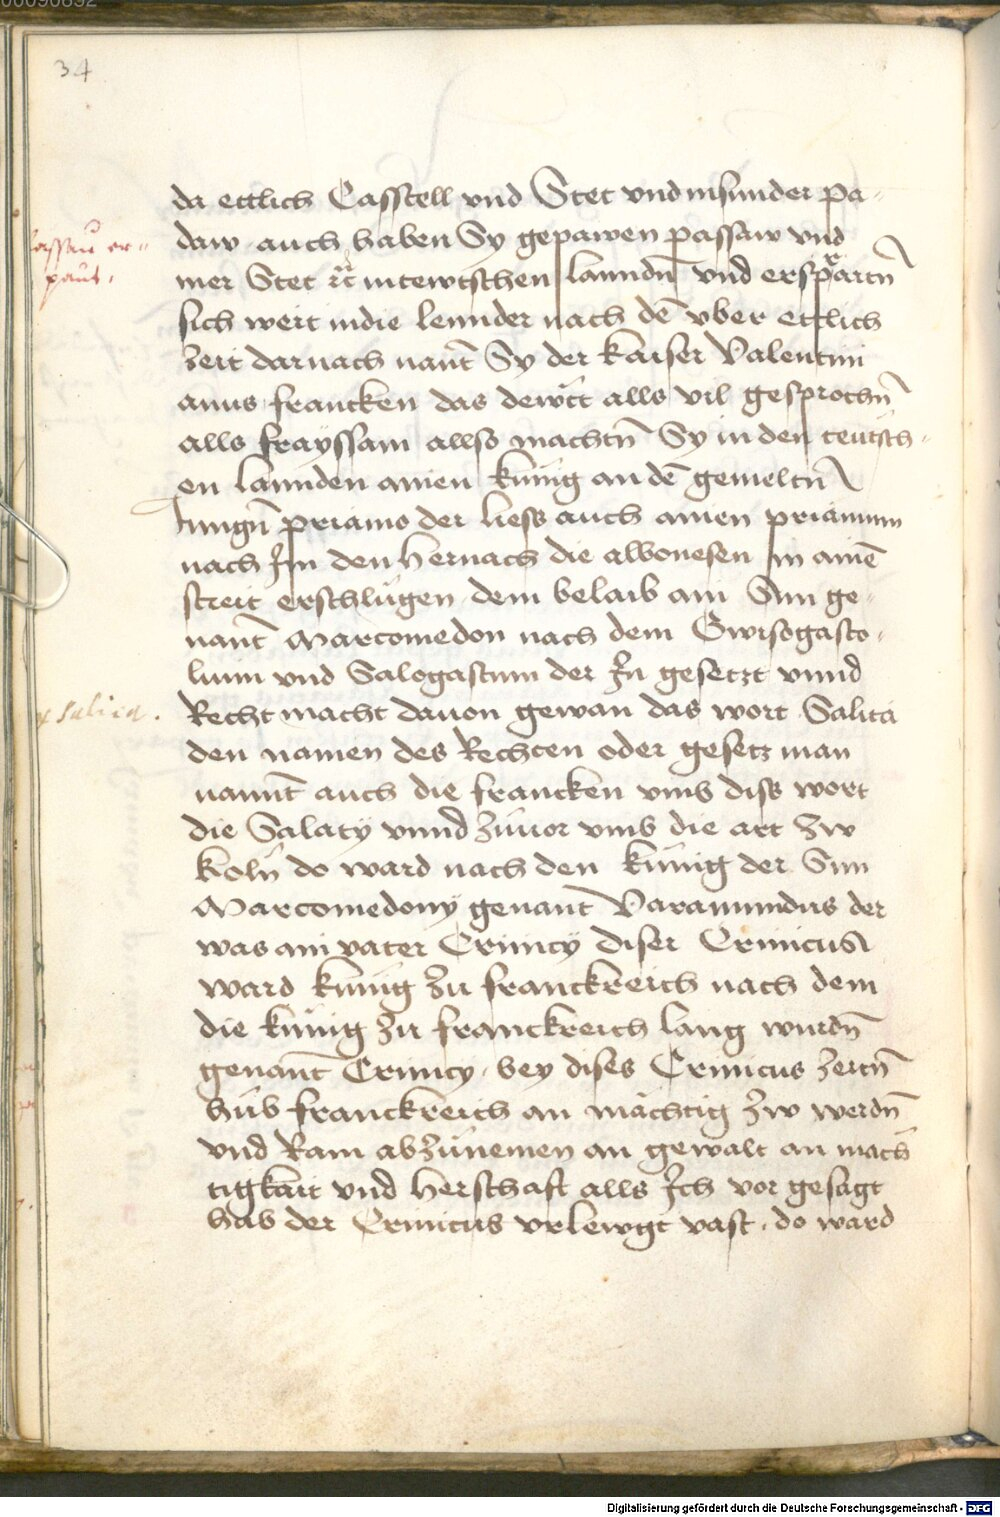 34
da ettlich Casstell vnd Stet vnd insunder pa-
daw auch haben Sy gepawen passaw vnd
mer Stet rc̃ in tewtschen lanndn̄ vnd erspͣartn̄
sich weit in die lennder nach dē vber ettlich
zeit darnach nant̄ Sy der kaiser Valentini
anus francken das dewt̃t alls vil gesprochn̄
alls frayssam allso machtn̄ Sy in den teutsch-
en lannden ainen kunig an dē gemeltn̄
kungn̄ priamo der liess auch ainen priamum
nach Im den hernach die albonesen In ainē
streit erschlugen dem belaib ain Sun ge-
nant̄ Marcomedon nach dem Gwisogasto-
lum vnd Salogastum der In gesetzt vnnd
Recht macht dauon gewan das wort Salita
den namen des Rechten oder gesetz man
nannt̄ auch die francken vmb diss wort
die Salaty vnnd zuuor vmb die art zw
koln do ward nach den kunig der Sun
Marcomedony genant Varamundus der
was ain vater Crinicy diser Crinicus
ward kunig zu franckreich nach dem
die kunig zu franckreich lang wurdn̄
genant̄ Crinicy bey dises Crinicus zeitn̄
hub franckreich an mächtig zw werdn̄
vnd Ram abzunemen an gewalt an mäch
tigkait vnd herschaft alls Ich vor gesagt
hab der Crinicus vrlewgt vast . do ward
passau er-
paut.
salica.
Digitalisierung gefördert durch die Deutsche Forschungsgemeinschaft - DFG
00090892